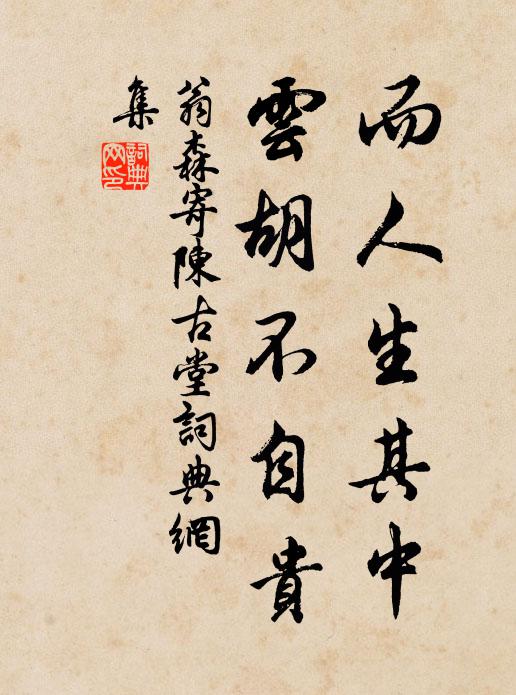 而人生其中
雲胡不自貴
翁森寄陳古堂詞典網
集
詞典網印